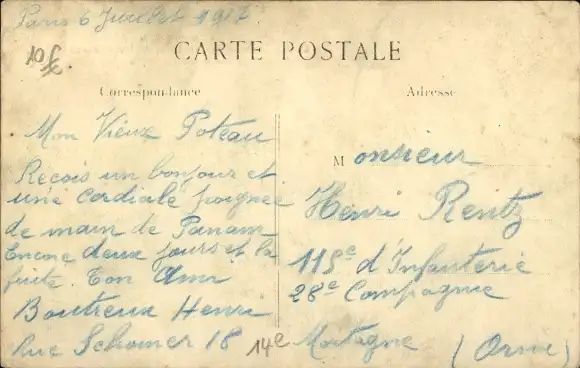 Paris 6 Juillet 1917
CARTE POSTALE
Correspondance
Adresse
Mon Vieux Poteau
Recois un bonjour et
une cordiale poignée
de main de Panam
Encore deux jours et la
fuite. Ton Ami
Boutreux Henri
Rue Schomer 18 14e
Monsieur
Henri Rentz
115e d'Infanterie
28e Compagnie
Mortagne (Orne)